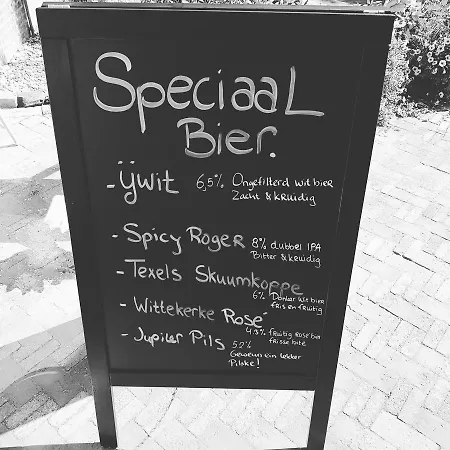 Speciaal
Bier.
- ÿwit 6,5% Ongefilterd wit bier
Zacht & kruidig
- Spicy Roger 8% dubbel IPA
Bitter & kruidig
- Texels Skuumkoppe
6% Donker wit bier
fris en fruitig
- Wittekerke Rosé
4.3% fruitig rosé bier
frisse bite
- Jupiler Pils 5.2%
Gewoon een lekker
Pilske!